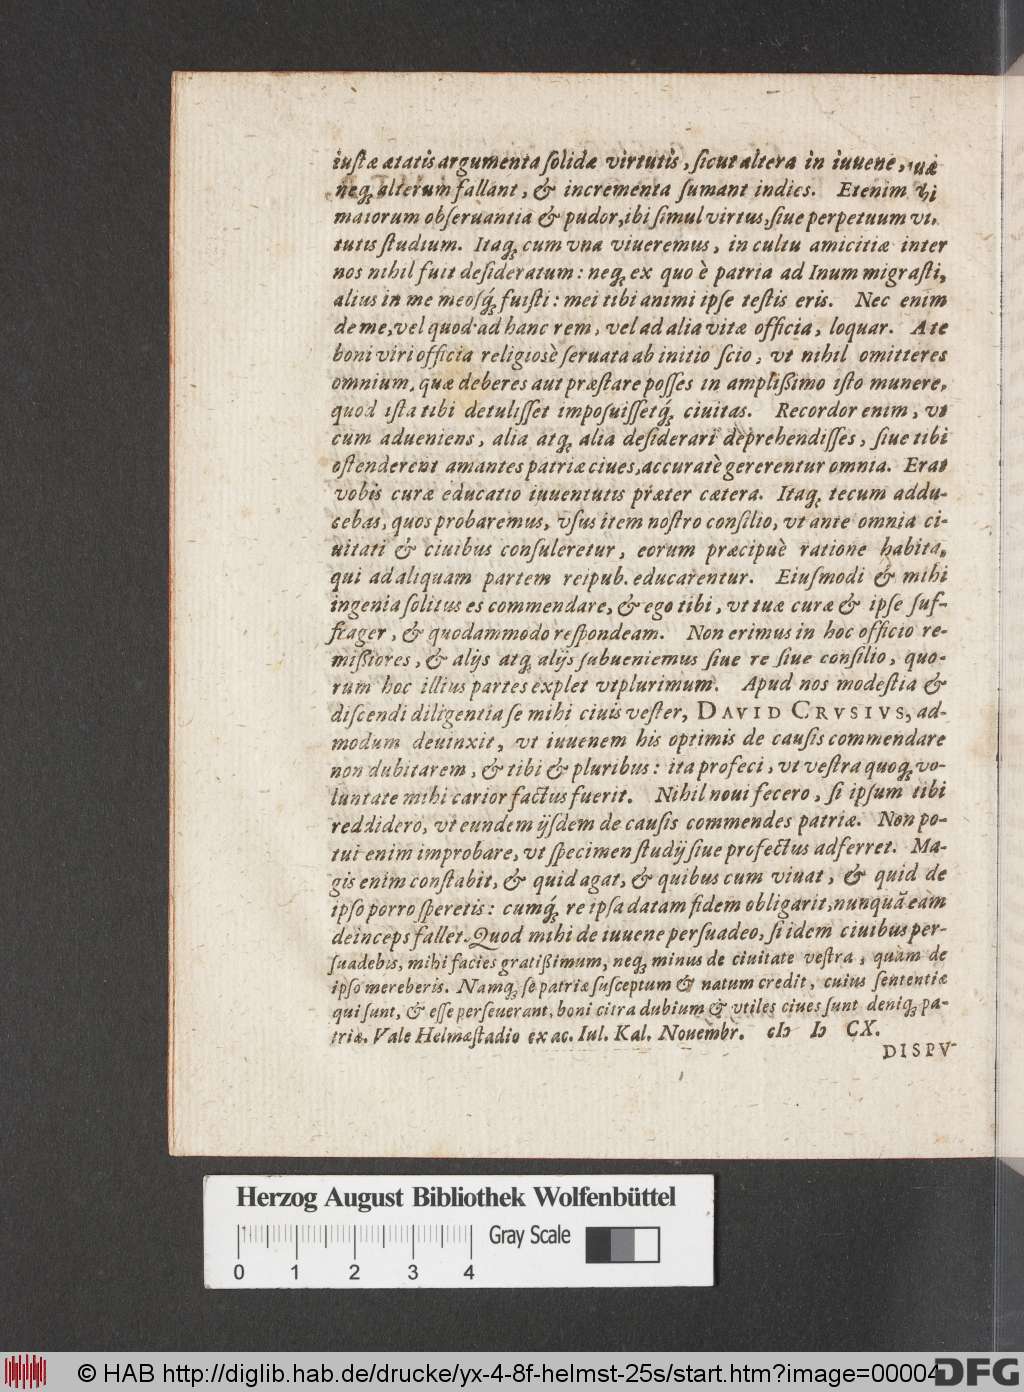 iustæ ætatis argumenta solidæ virtutis, sicut altera in iuuene, quæ
neq; alterum fallant, & incrementa sumant indies. Etenim vbi
maiorum obseruantia & pudor, ibi simul virtus, siue perpetuum vir-
tutis studium. Itaq; cum vna viueremus, in cultu amicitiæ inter
nos nihil fuit desideratum: neq; ex quo è patria ad Inum migrasti,
alius in me meosq́; fuisti: mei tibi animi ipse testis eris. Nec enim
de me, vel quod ad hanc rem, vel ad alia vitæ officia, loquar. A te
boni viri officia religiosè seruata ab initio scio, vt nihil omitteres
omnium, quæ deberes aut præstare posses in amplißimo isto munere,
quod ista tibi detulisset imposuissetq́; ciuitas. Recordor enim, vt
cum adueniens, alia atq; alia desiderari deprehendisses, siue tibi
ostenderent amantes patriæ ciues, accuratè gererentur omnia. Erat
vobis curæ educatio iuuentutis præter cætera. Itaq; tecum addu-
cebas, quos probaremus, vsus item nostro consilio, vt ante omnia ci-
uitati & ciuibus consuleretur, eorum præcipuè ratione habita,
qui ad aliquam partem reipub. educarentur. Eiusmodi & mihi
ingenia solitus es commendare, & ego tibi, vt tuæ curæ & ipse suf-
frager, & quodammodo respondeam. Non erimus in hoc officio re-
mißiores, & alijs atq; alijs subueniemus siue re siue consilio, quo-
rum hoc illius partes explet vtplurimum. Apud nos modestia &
discendi diligentia se mihi ciuis vester, DAVID CRVSIVS, ad-
modum deuinxit, vt iuuenem his optimis de causis commendare
non dubitarem, & tibi & pluribus: ita profeci, vt vestra quoq; vo-
luntate mihi carior factus fuerit. Nihil noui fecero, si ipsum tibi
reddidero, vt eundem ijsdem de causis commendes patriæ. Non po-
tui enim improbare, vt specimen studij siue profectus adferret. Ma-
gis enim constabit, & quid agat, & quibus cum viuat, & quid de
ipso porro speretis: cumq́; re ipsa datam fidem obligarit, nunquã eam
deinceps fallet. Quod mihi de iuuene persuadeo, si idem ciuibus per-
suadebis, mihi facies gratißimum, neq; minus de ciuitate vestra, quam de
ipso mereberis. Namq; se patriæ susceptum & natum credit, cuius sententiæ
qui sunt, & esse perseuerant, boni citra dubium & vtiles ciues sunt deniq; pa-
triæ. Vale Helmæstadio ex ac. Iul. Kal. Nouembr. cIↄ Iↄ CX.
DISPV-
Herzog August Bibliothek Wolfenbüttel
Gray Scale
0 1 2 3 4
© HAB http://diglib.hab.de/drucke/yx-4-8f-helmst-25s/start.htm?image=00004
DFG